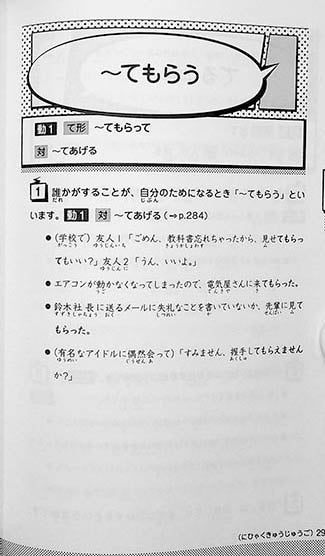 ～てもらう
動1 て形 ～てもらって
対 ～てあげる
1 誰かがすることが、自分のためになるとき「～てもらう」とい
います。動1 対 ～てあげる(⇒p.284)
●(学校で)友人1「ごめん、教科書忘れちゃったから、見せてもらっ
てもいい?」友人2「うん、いいよ。」
●エアコンが動かなくなってしまったので、電気屋さんに来てもらった。
●鈴木社長に送るメールに失礼なことを書いていないか、先輩に見て
もらった。
●(有名なアイドルに偶然会って)「すみません、握手してもらえません
か?」
(にひゃくきゅうじゅうご) 29